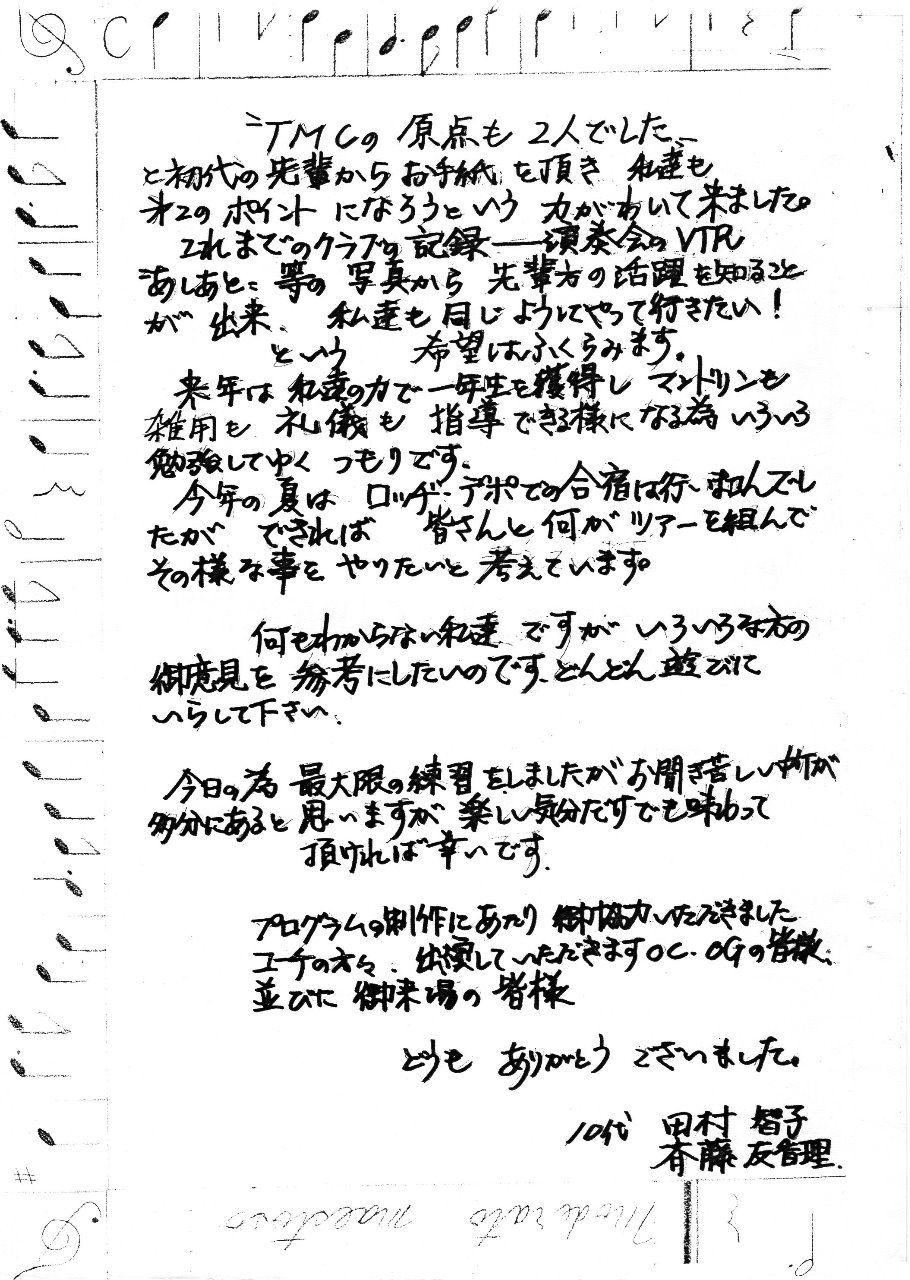 〝TMCの 原点も 2人でした〟
と初代の先輩から お手紙 を頂き 私達も
才2の ポイント になろうという 力がわいて来ました。
これまでのクラブの記録――演奏会のVTR
〝あしあと〟等の 写真から 先輩方の活躍を知ること
が 出来、 私達も同じようにやって行きたい！
という 希望はふくらみます。
来年は 私達の力で一年生を獲得し マンドリンも
雑用も 礼儀も 指導できる様になる為いろいろ
勉強してゆく つもりです。
今年の夏は ロッヂ・デポでの合宿は行いませんでし
たが できれば 皆さんと何かツアーを組んで
その様な事を やりたいと考えています。
何もわからない私達ですが いろいろな方の
御意見を 参考にしたいのです、どんどん遊びに
いらして下さい、
今日の為 最大限の練習をしましたがお聞き苦しい所が
多分にあると思いますが 楽しい気分だけでも味わって
頂ければ幸いです、
プログラムの制作にあたり 御協力いただきました
コーチの方々、出演していただきますOC・OGの皆様、
並びに 御来場の 皆様
どうも ありがとう ございました。
10代 田村 智子
斉藤 友香理
Moderato maestoso